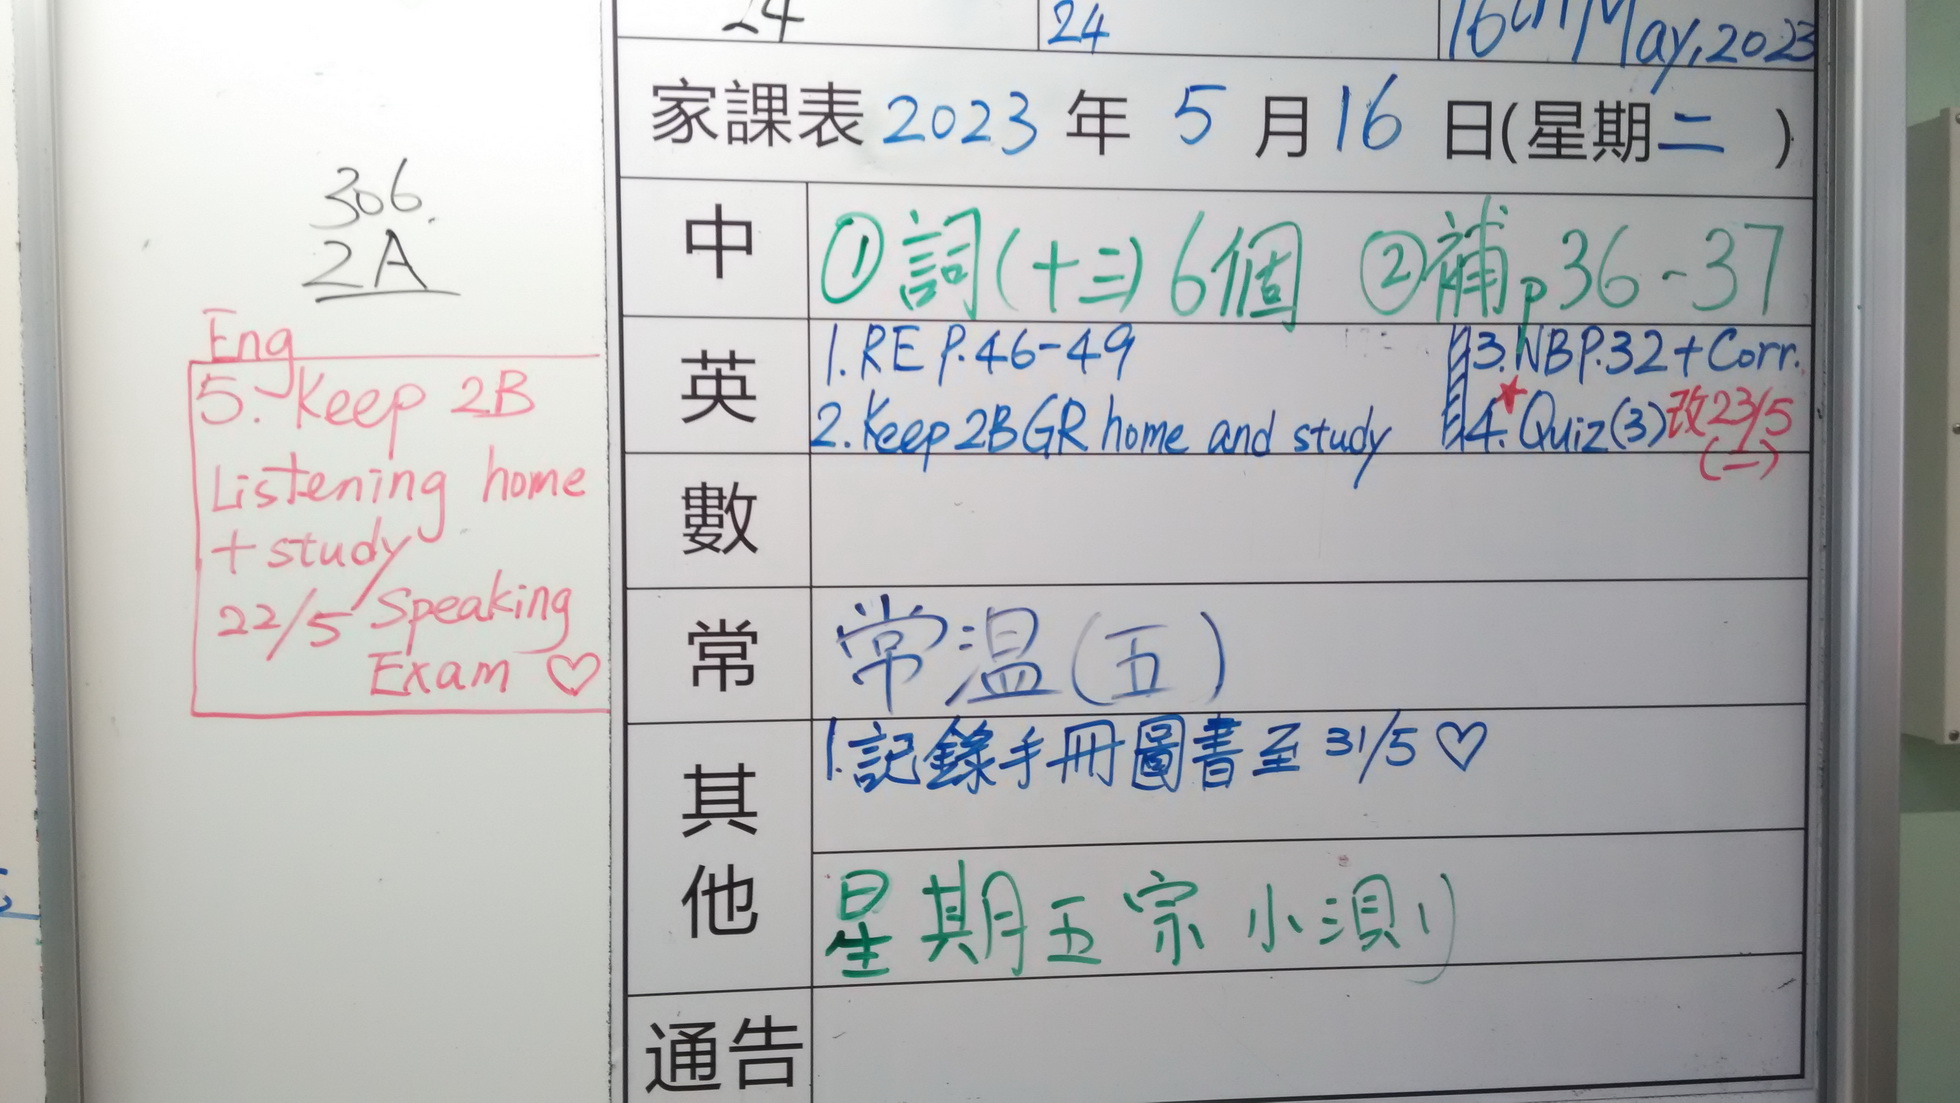 24
24
16th May, 2023
家課表 2023 年 5 月 16 日(星期二)
306.
2A
中
① 詞(十三) 6個 ② 補p36-37
英
1. RE P.46-49
2. Keep 2B GR home and study
3. NB P.32 + Corr.
4.★Quiz(3) 改23/5
(二)
Eng
5. Keep 2B
Listening home
+ study
22/5 Speaking
Exam ♡
數
常
常温(五)
其他
1.記錄手冊圖書至 31/5 ♡
星期五宗小測
通告